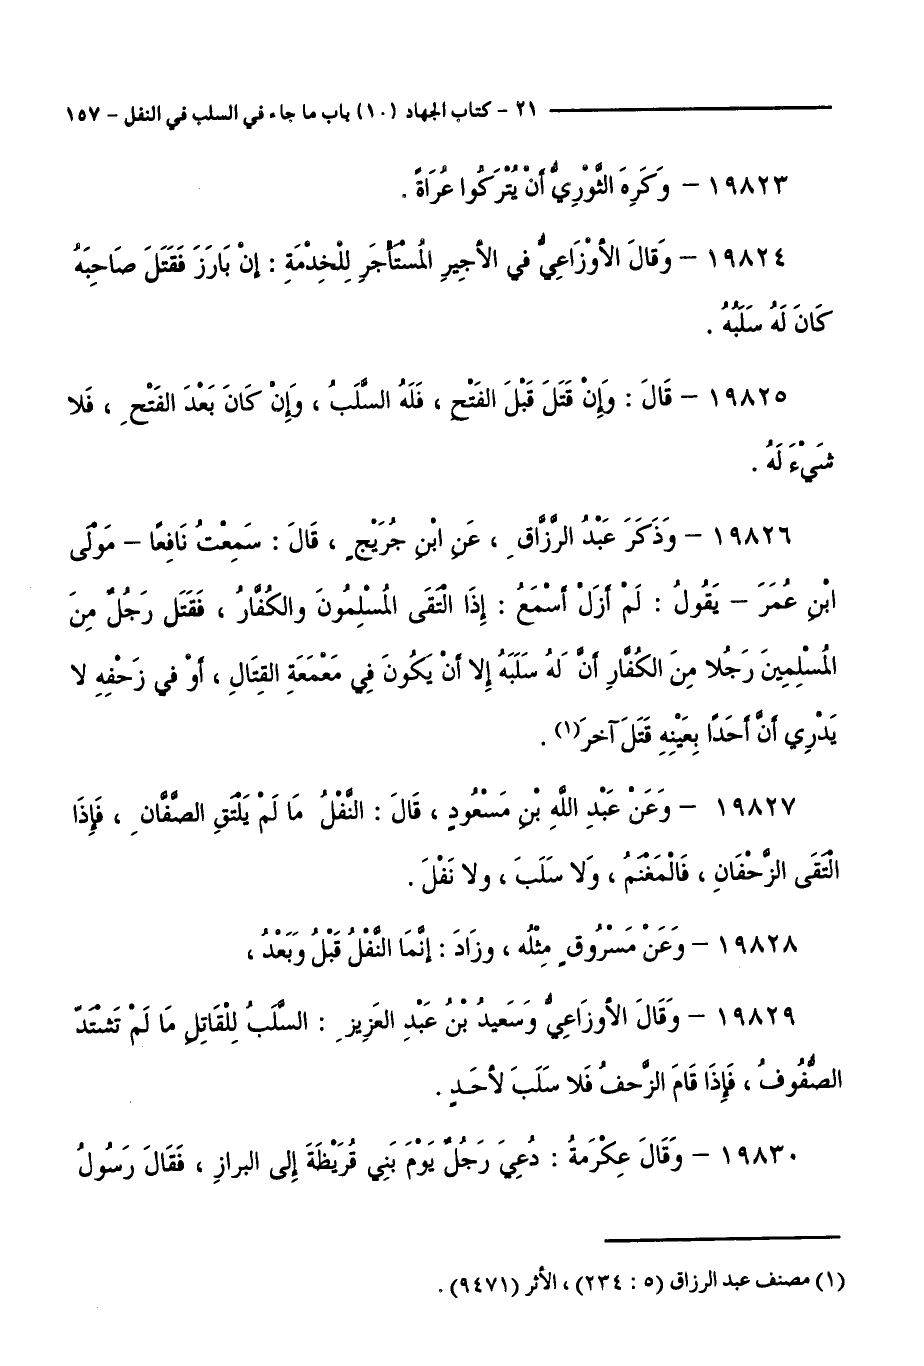 ٢١ - كتاب الجهاد (١٠) باب ما جاء في السلب في النفل - ١٥٧
١٩٨٢٣ – وَكَرِهَ الثَّوْرِيُّ أَنْ يُتْرَكُوا عُرَاةً .
١٩٨٢٤ – وَقالَ الأوْزَاعِيُّ في الأجيرِ المُسْتَأْجَرِ لِلْخِدْمَةِ : إنْ بَارَزَ فَقَتَلَ صَاحِبَهُ
كَانَ لَهُ سَلَبُهُ .
١٩٨٢٥ – قَالَ : وَإِنْ قَتَلَ قَبْلَ الفَتْحِ ، فَلَهُ السَّلَبُ ، وَإِنْ كَانَ بَعْدَ الفَتْحِ ، فَلا
شَيْءَ لَهُ .
١٩٨٢٦ – وَذَكَرَ عَبْدُ الرَّزَّاقِ ، عَنِ ابْنِ جُرَيْجٍ ، قَالَ : سَمِعْتُ نَافِعًا – مَوْلَى
ابْنِ عُمَرَ – يَقُولُ : لَمْ أَزَلْ أَسْمَعُ : إِذَا الْتَقَى المُسْلِمُونَ والكُفَّارُ ، فَقَتَل رَجُلٌ مِنَ
المُسْلِمِينَ رَجُلا مِنَ الكُفَّارِ أَنَّ لَهُ سَلَبَهُ إِلا أَنْ يَكُونَ فِي مَعْمَعَةِ القِتَالِ ، أَوْ في زَحْفِهِ لا
يَدْرِي أَنَّ أَحَدًا بِعَيْنِهِ قَتَلَ آخرَ(١) .
١٩٨٢٧ – وَعَنْ عَبْدِ اللَّهِ بْنِ مَسْعُودٍ ، قَالَ : النَّفْلُ مَا لَمْ يَلْتَقِ الصَّفَّانِ ، فَإِذَا
الْتَقَى الزَّحْفَانِ ، فَالْمَغْنَمُ ، وَلا سَلَبَ ، ولا نَفْلَ .
١٩٨٢٨ – وَعَنْ مَسْرُوقٍ مِثْلُه ، وزَادَ : إنَّمَا النَّفْلُ قَبْلُ وَبَعْدُ ،
١٩٨٢٩ – وَقَالَ الأوزَاعِيُّ وَسَعيدُ بْنُ عَبْدِ العَزِيزِ : السَّلَبُ لِلْقَاتِلِ مَا لَمْ تَشْتَدّ
الصُّفُوفُ ، فَإِذَا قَامَ الزَّحفُ فَلا سَلَبَ لأحَدٍ .
١٩٨٣٠ – وَقَالَ عِكْرَمَةُ : دُعِيَ رَجُلٌ يَوْمَ بَنِي قُرَيْظَةَ إِلى البرازِ ، فَقَالَ رَسُولُ
(١) مصنف عبد الرزاق (٥ : ٢٣٤) ، الأثر (٩٤٧١) .